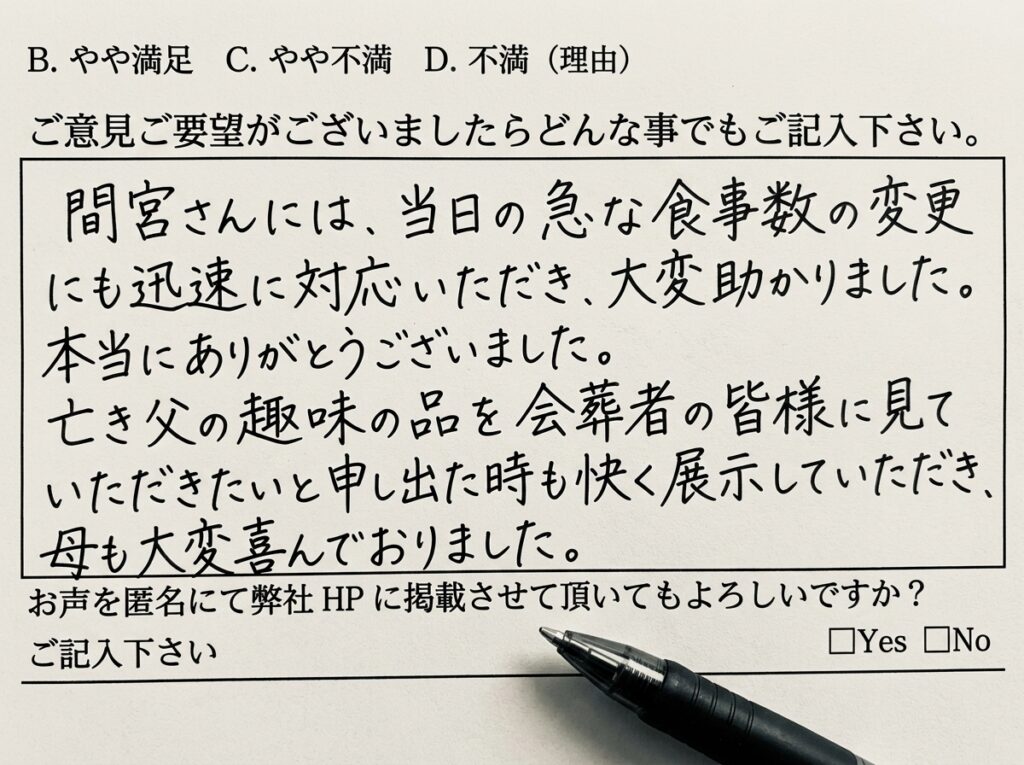 B. やや満足 C. やや不満 D. 不満（理由）
ご意見ご要望がございましたらどんな事でもご記入下さい。
間宮さんには、当日の急な食事数の変更
にも迅速に対応いただき、大変助かりました。
本当にありがとうございました。
亡き父の趣味の品を会葬者の皆様に見て
いただきたいと申し出た時も快く展示していただき、
母も大変喜んでおりました。
お声を匿名にて弊社 HP に掲載させて頂いてもよろしいですか？
ご記入下さい □Yes □No